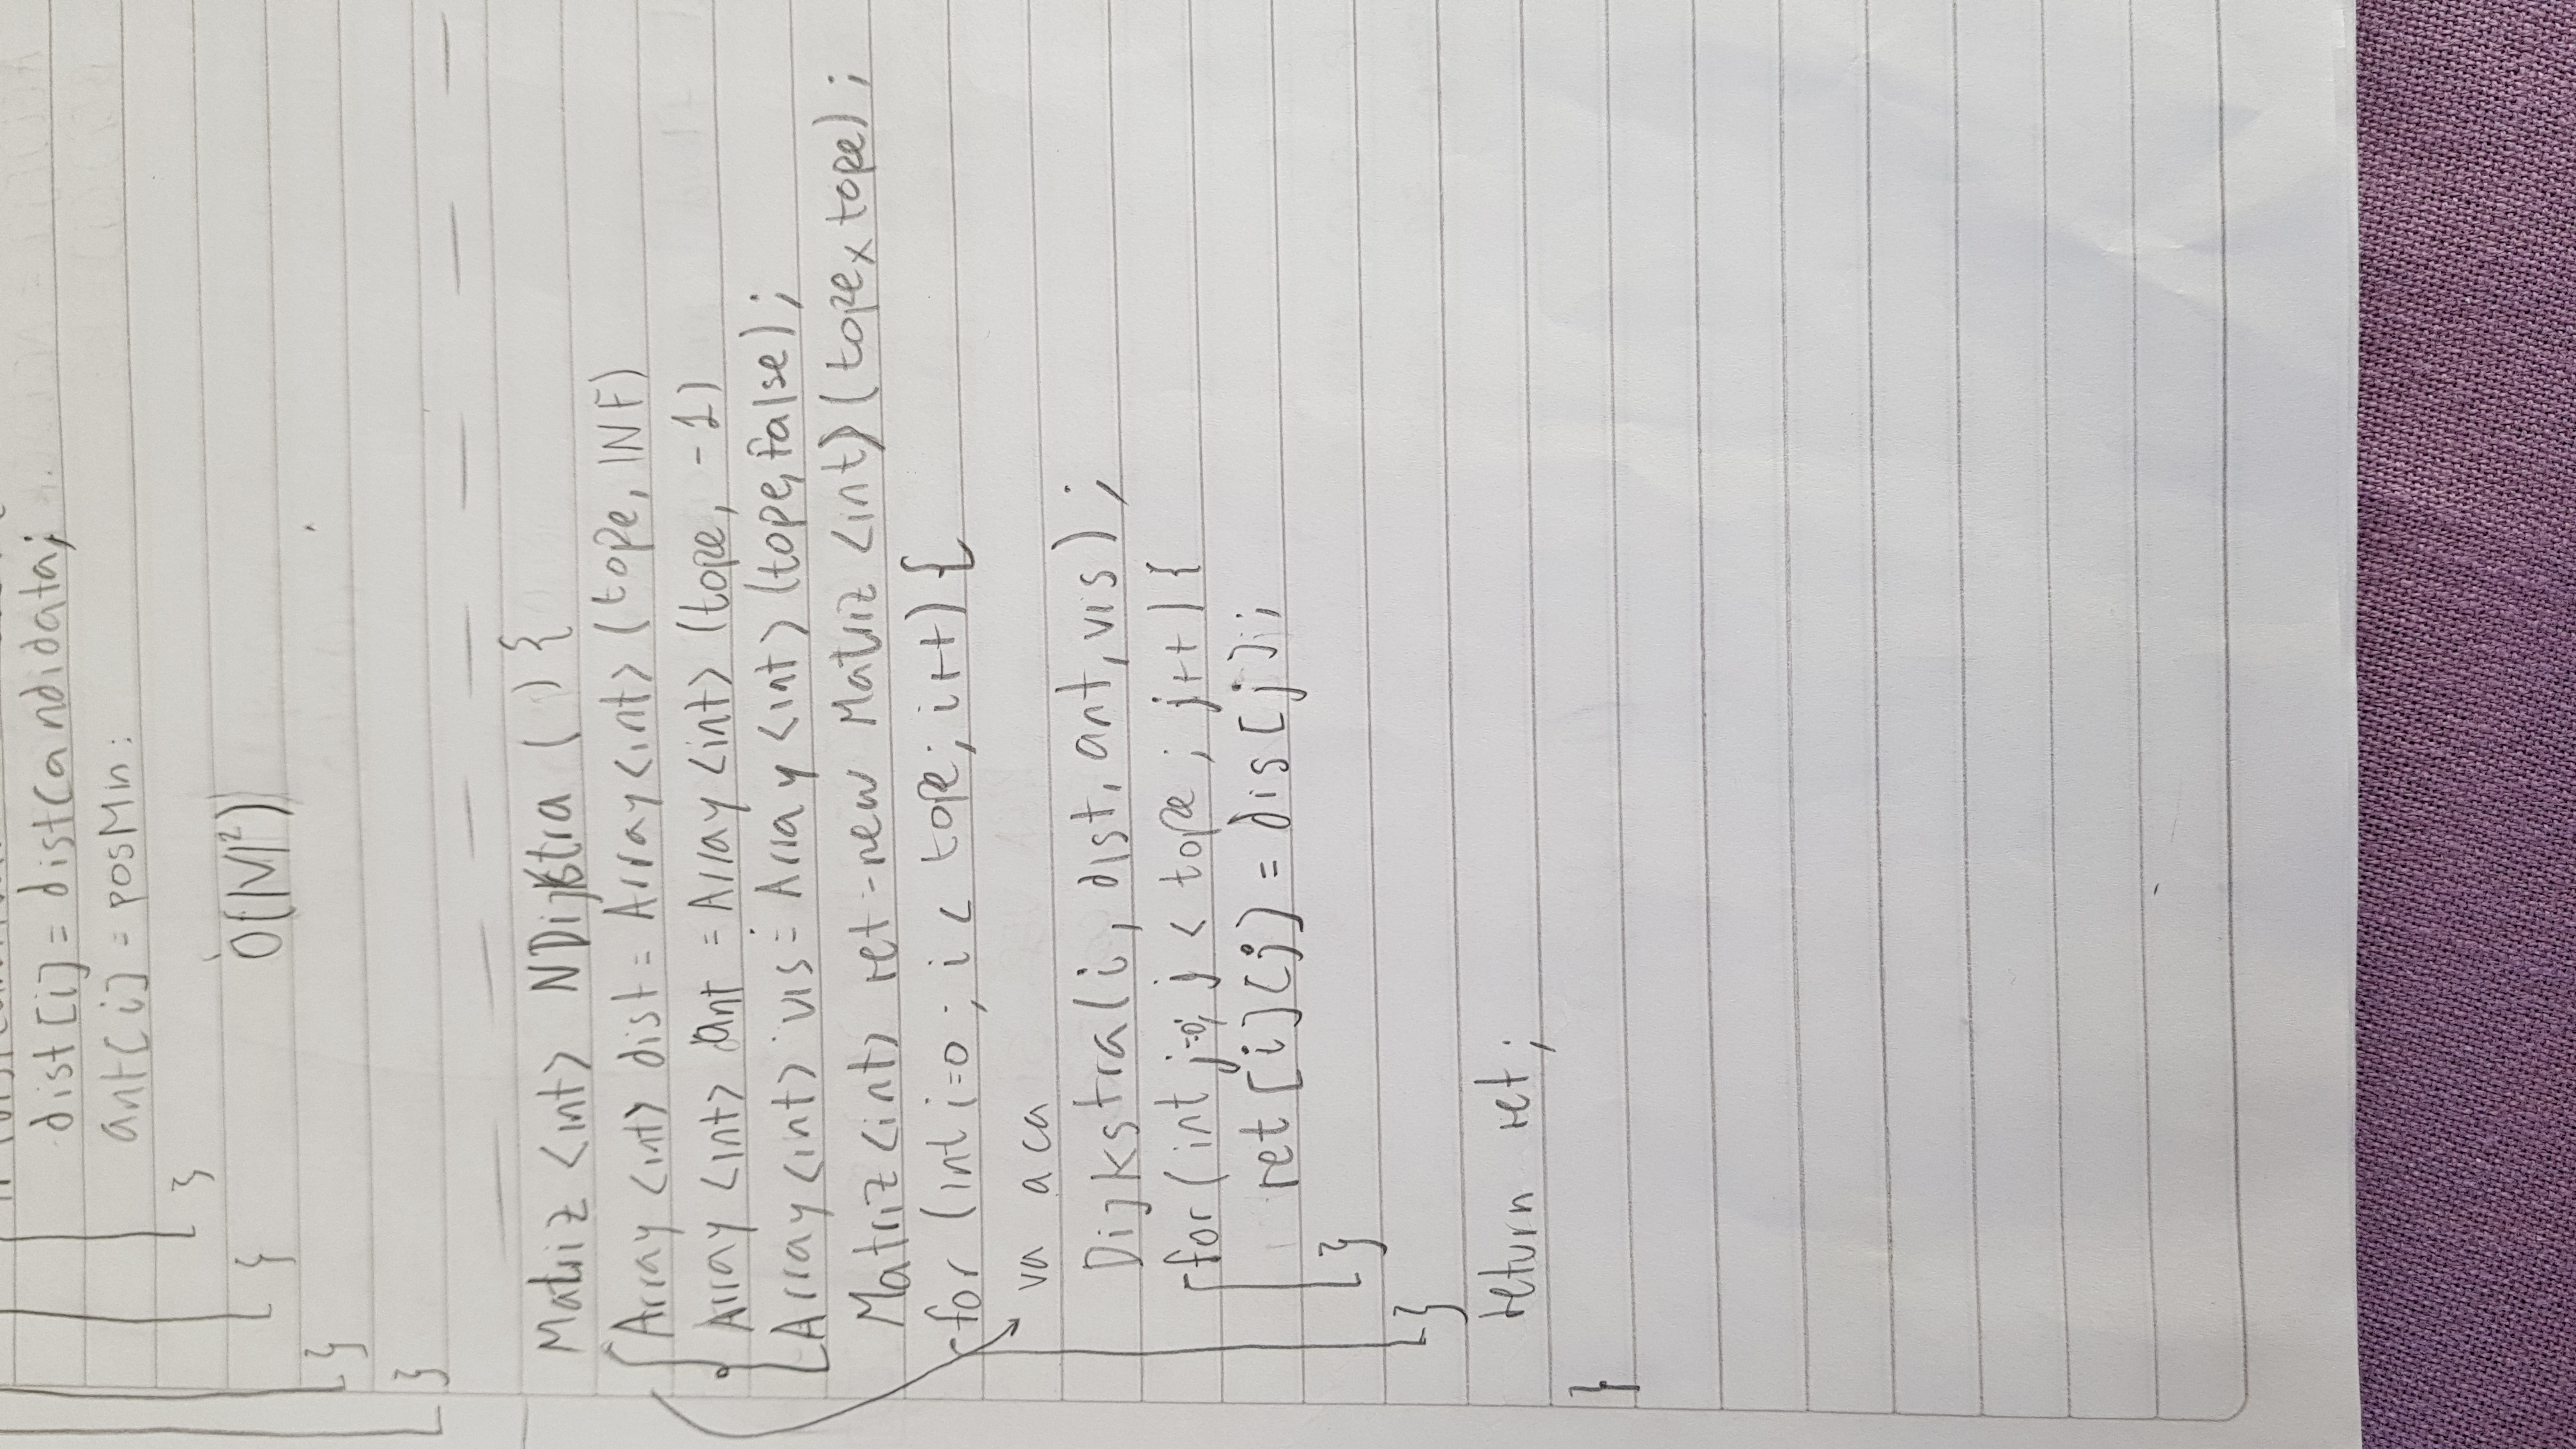 dist[i] = distCandidata;
ant[i] = posMin;
}
}
O(|V|²)
}
}
Matriz <int> NDijkstra ( ) {
Array <int> dist = Array <int> (tope, INF)
Array <int> ant = Array <int> (tope, -1)
Array <int> vis = Array <int> (tope, false);
Matriz <int> ret = new Matriz <int> (tope x tope);
for (int i=0 ; i < tope; i++) {
va aca
Dijkstra(i, dist, ant, vis);
for (int j=0; j < tope ; j++) {
ret [i][j] = dis[j];
}
}
return ret;
}